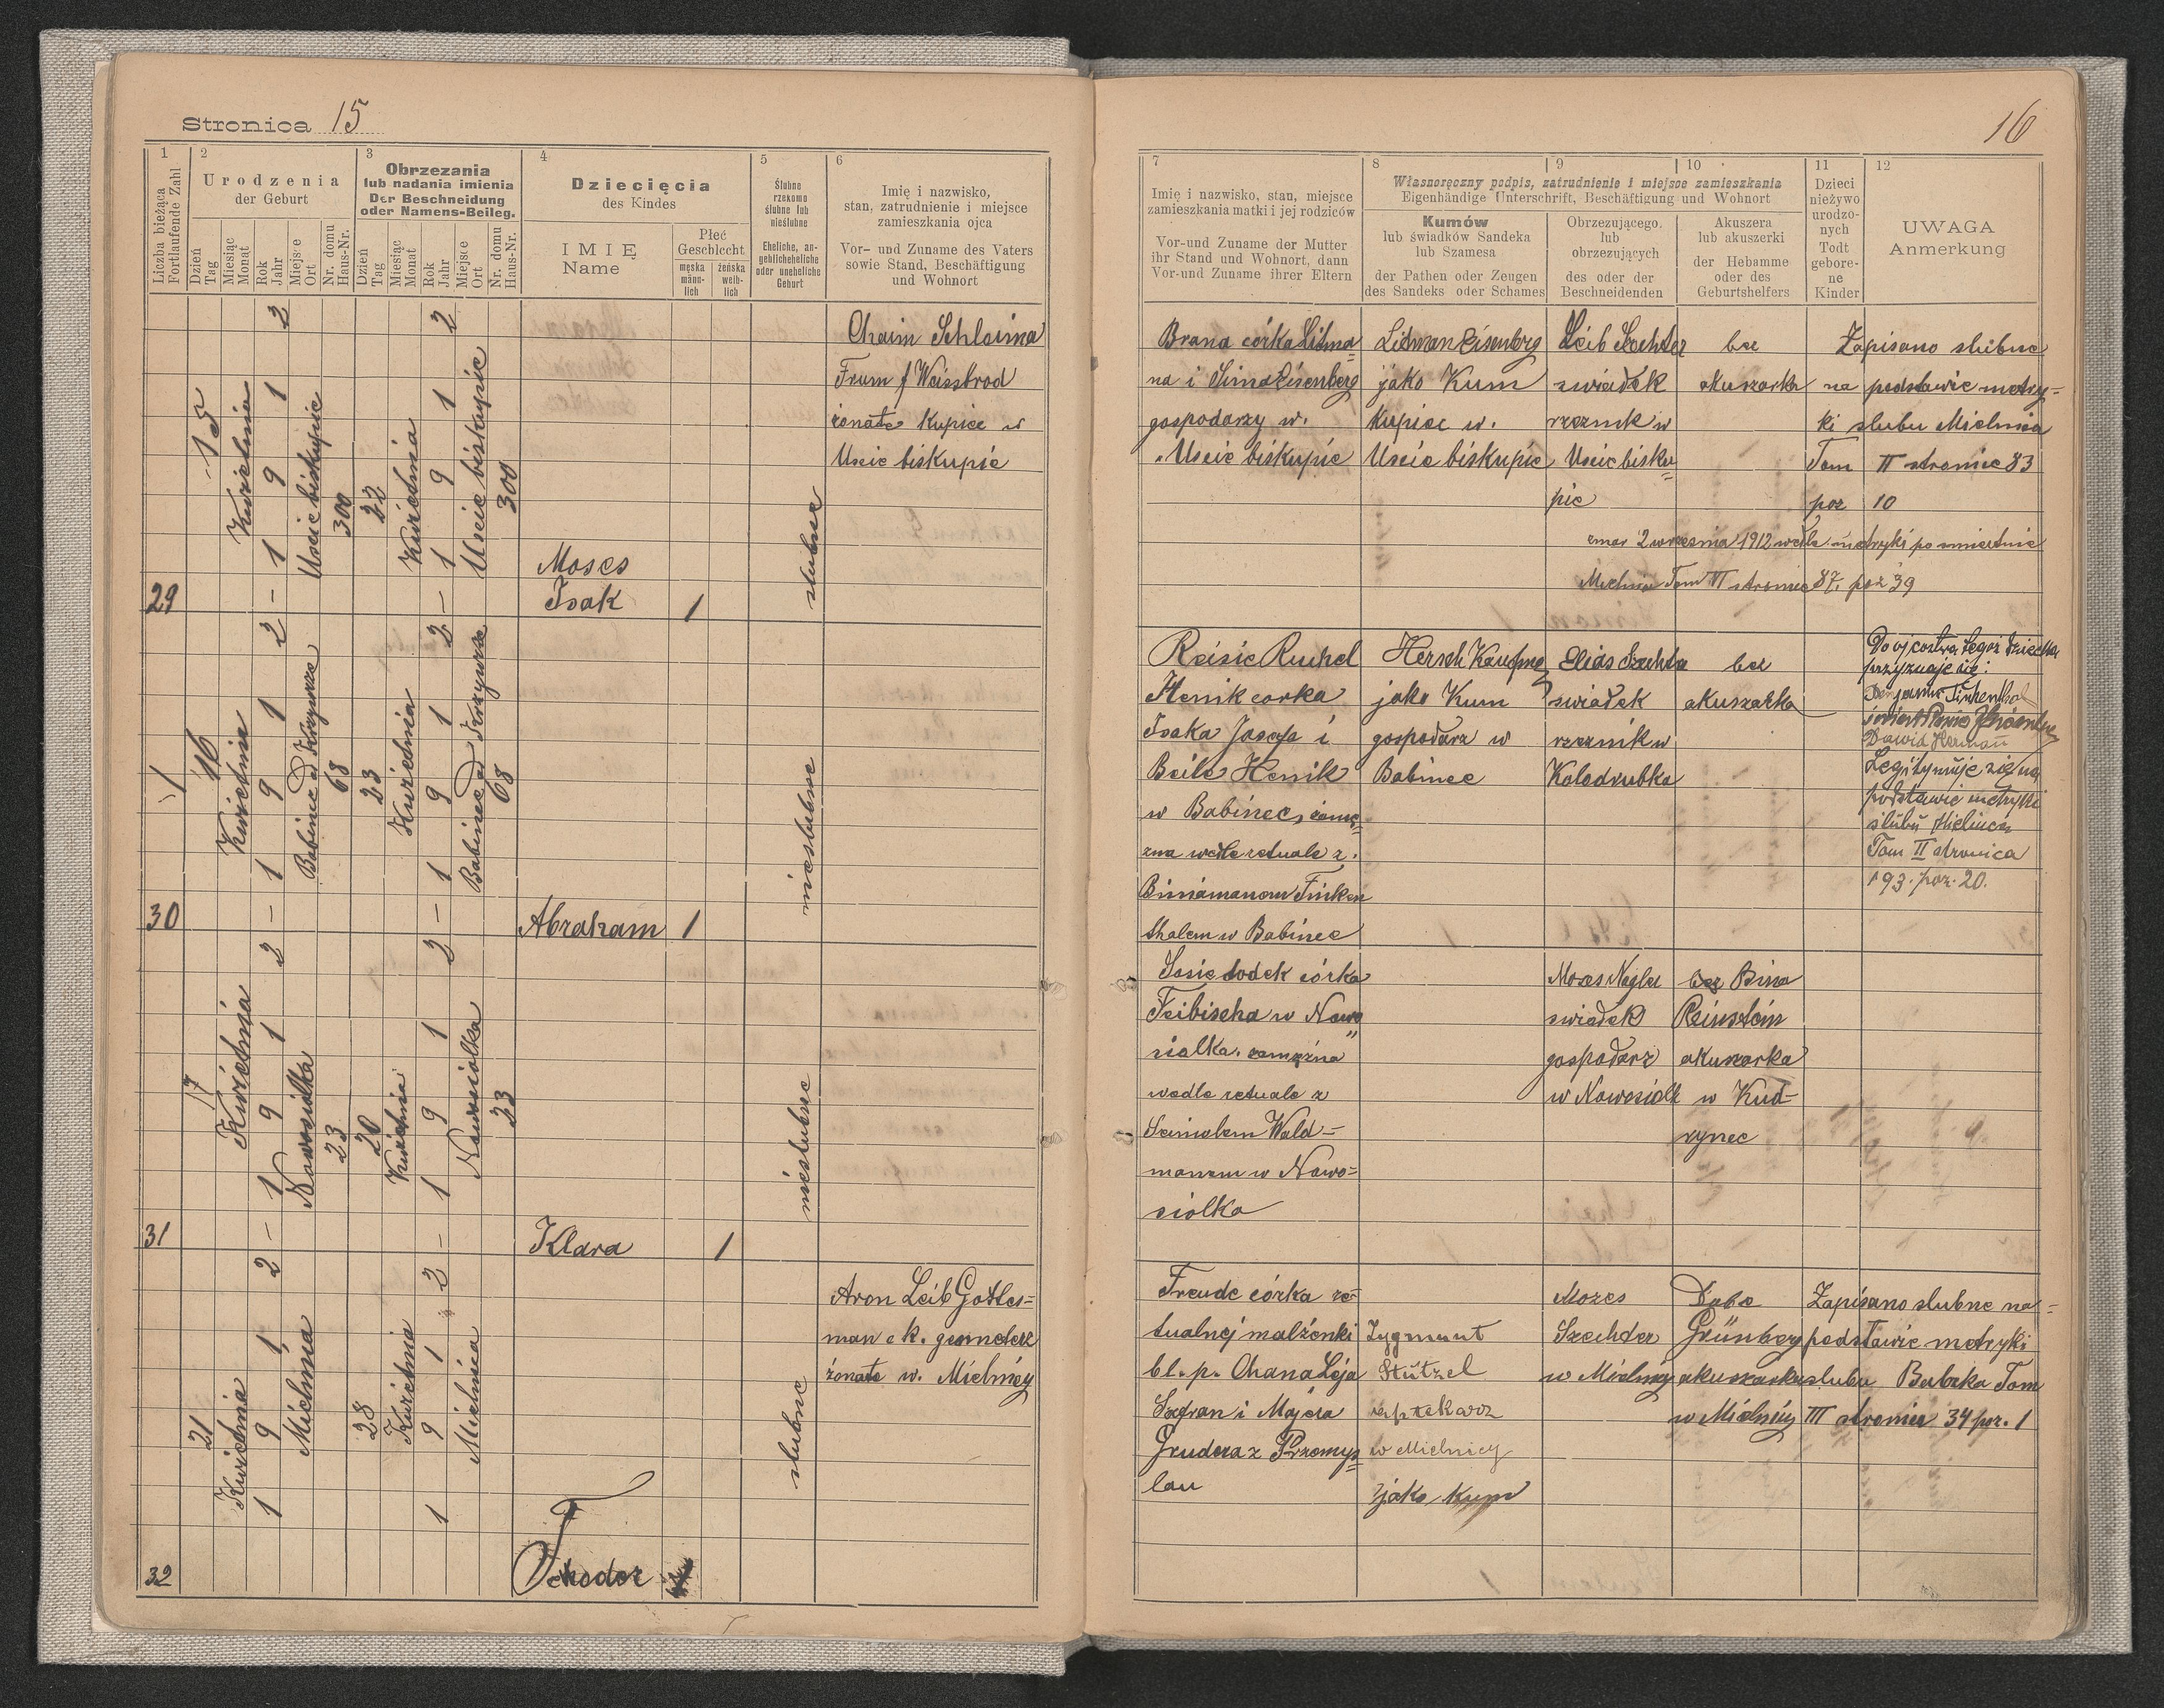 Stronica 15
1
Liczba bieżąca
Fortlaufende Zahl
2
Urodzenia
der Geburt
Dzień
Tag
Miesiąc
Monat
Rok
Jahr
Miejsce
Ort
Nr. domu
Haus-Nr.
3
Obrzezania
lub nadania imienia
Der Beschneidung
oder Namens-Beileg.
Dzień
Tag
Miesiąc
Monat
Rok
Jahr
Miejsce
Ort
Nr. domu
Haus-Nr.
4
Dziecięcia
des Kindes
IMIĘ
Name
Płeć
Geschlecht
męska
männ-
lich
żeńska
weib-
lich
5
Ślubne
rzekomo
ślubne lub
nieślubne
Eheliche, an-
geblicheheliche
oder uneheliche
Geburt
6
Imię i nazwisko,
stan, zatrudnienie i miejsce
zamieszkania ojca
Vor- und Zuname des Vaters
sowie Stand, Beschäftigung
und Wohnort
29
15
Kwietnia
1912
Uscie biskupie
300
22
Kwietnia
1912
Uscie biskupie
300
Moses
Isak
1
slubne
Chaim Schloima
Frum f Weissbrod
żonate kupiec w
Uscie biskupie
30
16
Kwietnia
1912
Babince ad Krzywcze
68
23
Kwietnia
1912
Babince ad Krzywcze
68
Abraham
1
nieslubne
31
17
Kwietnia
1912
Nowosiolka
23
20
Kwietnia
1912
Nowosiolka
23
Klara
1
nieslubne
32
21
Kwietnia
1912
Mielnica
28
Kwietnia
1912
Mielnica
Teodor
1
slubne
Aron Leib Gottes=
man c k. geometer
żonate w. Mielnicy
16
7
Imię i nazwisko, stan, miejsce
zamieszkania matki i jej rodziców
Vor-und Zuname der Mutter
ihr Stand und Wohnort, dann
Vor-und Zuname ihrer Eltern
8
9
10
Własnoręczny podpis, zatrudnienie i miejsce zamieszkania
Eigenhändige Unterschrift, Beschäftigung und Wohnort
Kumów
lub świadków Sandeka
lub Szamesa
der Pathen oder Zeugen
des Sandeks oder Schames
Obrzezującego,
lub
obrzezujących
des oder der
Beschneidenden
Akuszera
lub akuszerki
der Hebamme
oder des
Geburtshelfers
11
Dzieci
nieżywo
urodzo-
nych
Todt
gebore-
ne
Kinder
12
UWAGA
Anmerkung
Brana córka Litma=
na i Sima Eisenberg
gospodarzy w.
Uscie biskupie
Litman Eisenberg
jako Kum
kupiec w.
Uscie biskupie
Leib Szechter
swiadek
rzeznik w
Uscie bisku=
pie
bez
akuszorka
Zapisano slubne
na podstawie metry=
ki slubu Mielnica
Tom II stronice 83
poz 10
zmar 2 wrzesnia 1912 wedle metryki po smiertnie
Mielnica Tom VI stronice 87. poz 39
Reisie Ruchel
Henik corka
Isaka Josefa i
Beile Henik
w Babinec, zamę=
zna wedle retuale z.
Biniamanom Finken
thalem w Babince
Hersch Kaufman
jako Kum
gospodarz w
Babince
Elias Szechter
swiadek
rzeznik w
Kolodrubka
bez
akuszarka
Do ojcostwa tegoż dziecka
przyznaje się:
Benjamin Finkenthal
Dawid Herman
Legitymuje się na
podstawie metryki
slubu Mielnica
Tom II stronica
93. poz. 20.
Sosie Sodek córka
Feibischa w Nowo
siolka. zamęzna
wedle retuale z
Seimolem Wald=
manem w Nowo=
siolka
Mozes Nagler
swiadek
gospodarz
w Nowosiolk
bez Bina
Reinstein
akuszorka
w Kud=
rynec
Freude córka re=
tualnej malżenki
bl. p. Chana Leja
Szfran i Majera
Grudera z Przemys=
lau
Zygmunt
Stützel
aptekarz
w Mielnicy
jako kum
Mozes
Szechter
w Mielnicy
Dobe
Grünberg
akuszorka
w Mielnicy
Zapisano slubne na=
podstawie metryki
slubu Bobrka Tom
III stronice 34 poz. 1